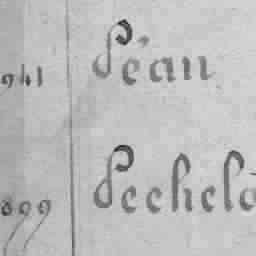 941 Péan
899 Pechelo